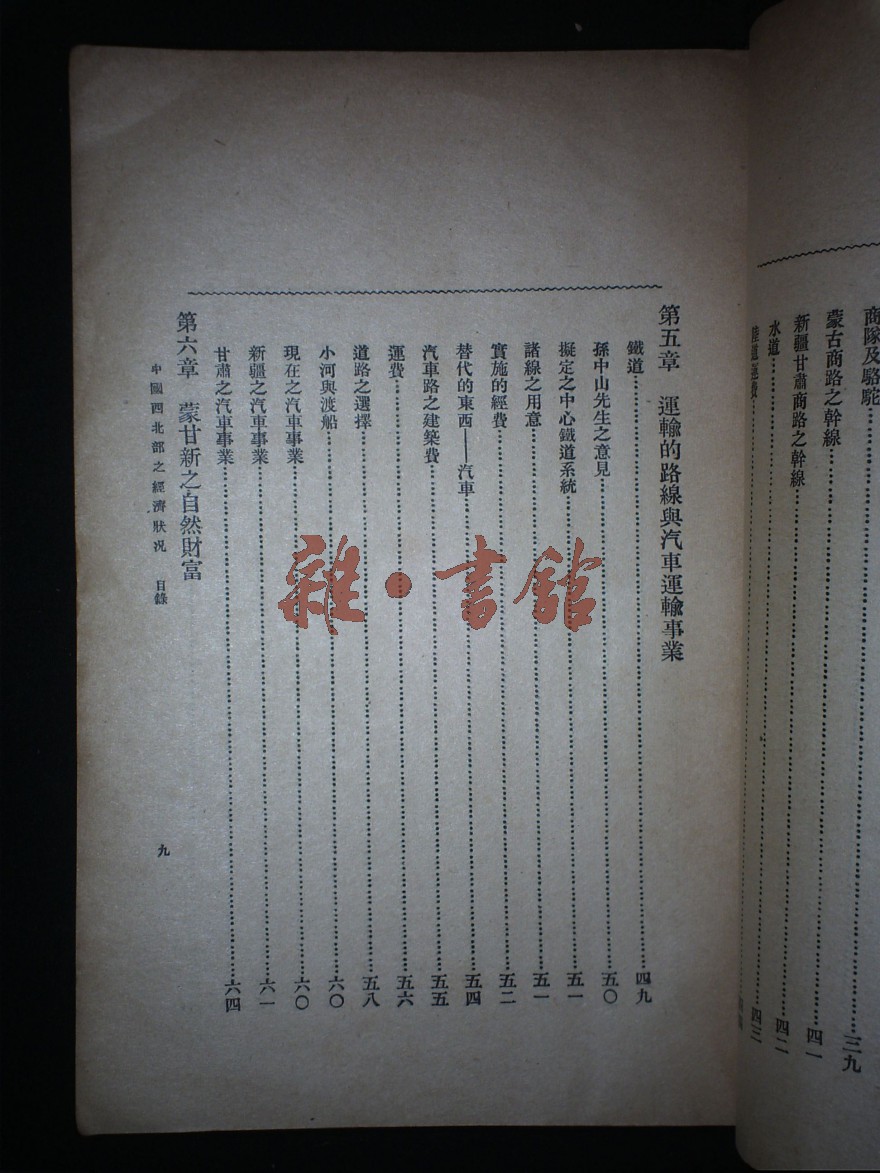 商隊及駱駝……三九
蒙古商路之幹線……四一
新疆甘肅商路之幹線……四二
水道……四三
陸道運費……
第五章　運輸的路線與汽車運輸事業
鐵道……四九
孫中山先生之意見……五〇
擬定之中心鐵道系統……五一
諸線之用意……五一
實施的經費……五二
替代的東西——汽車……五四
汽車路之建築費……五五
運費……五六
道路之選擇……五八
小河與渡船……六〇
現在之汽車事業……六〇
新疆之汽車事業……六一
甘肅之汽車事業……六四
第六章　蒙甘新之自然財富
中國西北部之經濟狀況　目錄　九
雜·書館